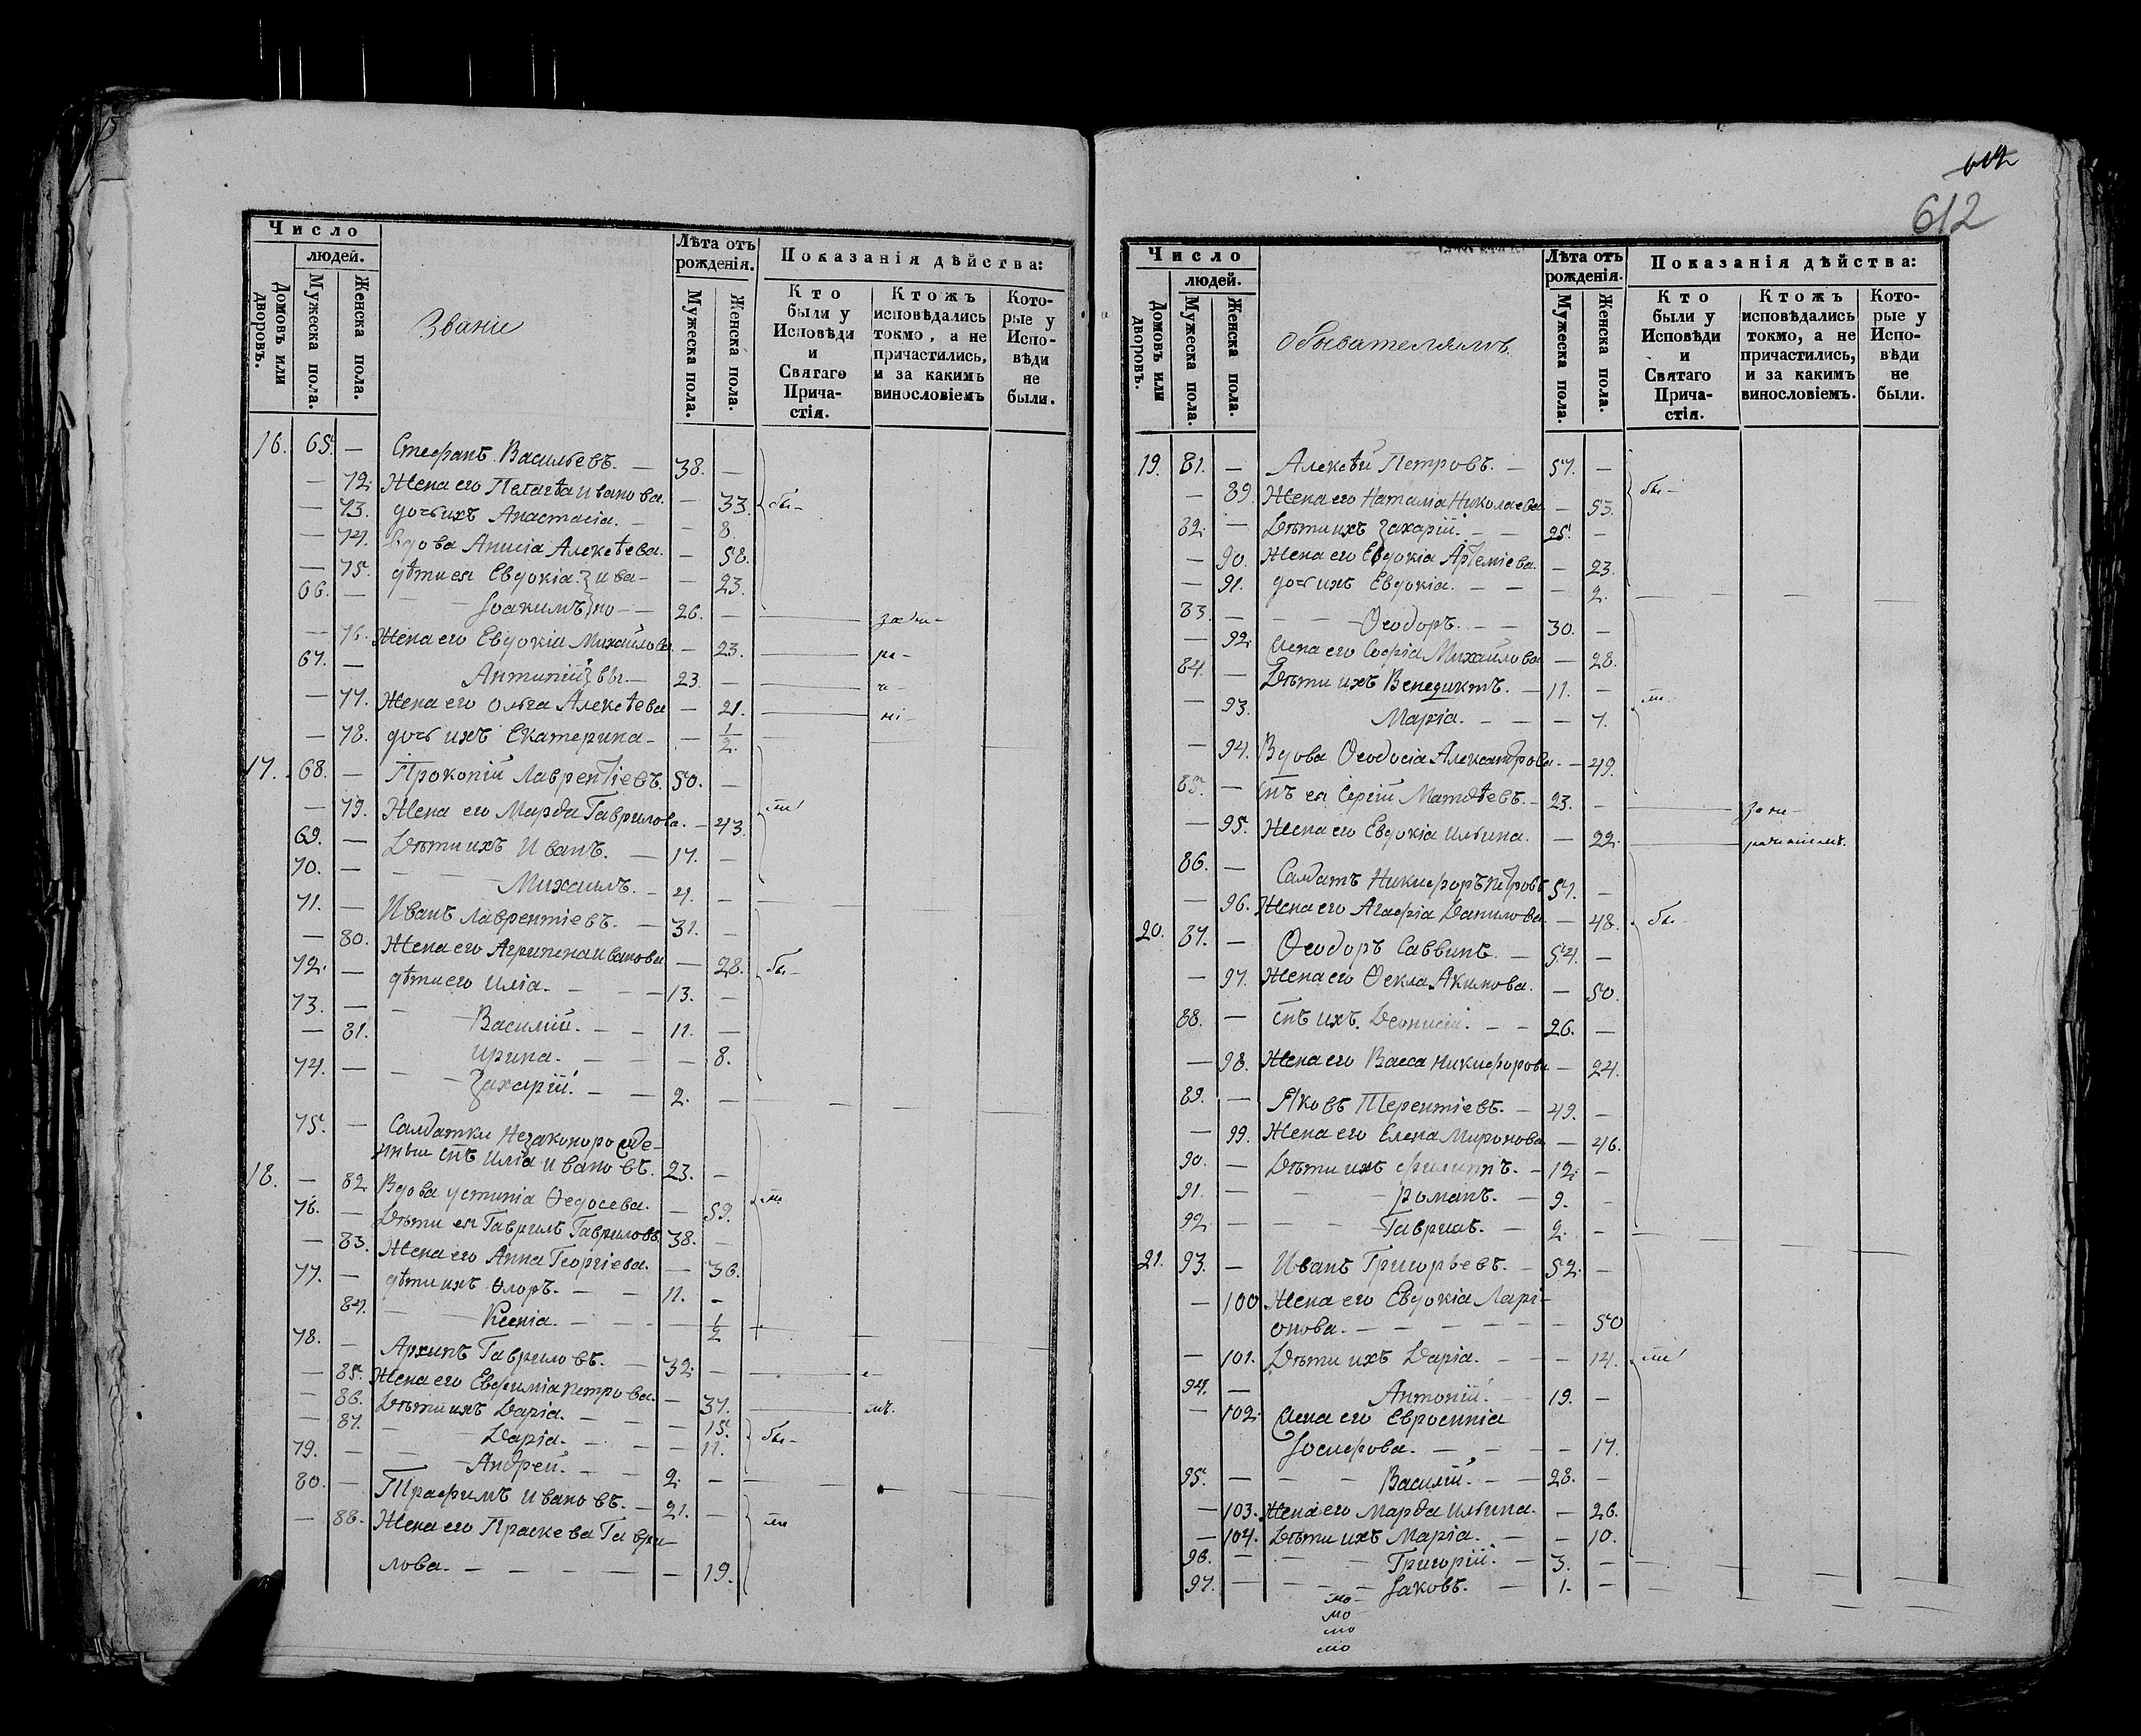 Число
людей.
Домовъ или дворовъ.
Мужеска пола.
Женска пола.
Званіе
Лѣта отъ рожденія.
Мужеска пола.
Женска пола.
Показанія дѣйства:
Кто были у Исповѣди и Святаго Причастія.
Ктожъ исповѣдались токмо, а не причастились, и за какимъ винословіемъ
Которые у Исповѣди не были.
16. 65. — Стефанъ Васильевъ. — 38. —
— 72. Жена его Пелагѣа Иванова. — 33. бы-
— 73. дочь ихъ Анастасіа. — — 8.
— 74. вдова Анисіа Алексѣева. — 58.
— 75. дѣти ея Евдокіа. } ива- — 23.
66. — — Іоакимъ } но — — 26. — за не-
— 76. Жена его Евдокіа Михайлова — 23. ра-
67. — Антипій } вы. — 23. — че-
— 77. Жена его Ольга Алексѣева — 21. ні-
— 78. дочь ихъ Екатерина — — 1/2.
17. 68. — Прокопій Лаврентіевъ. 50. —
— 79. Жена его Марѳа Гаврилова. — 43. ли
69. — Дѣти ихъ Иванъ. — 17. —
70. — — — Михаилъ. — 4. —
71. — Иванъ Лаврентіевъ. — 31. —
— 80. Жена его Агрипена Иванова — 28. бы-
72. — дѣти его Иліа. — — 13. —
73. — — Василій. — — 11. —
— 81. Ирина. — — — 8.
74. — — Захарій. — — 2. —
75. — Салдатки Незаконорожде-
нный снъ Иліа Ивановъ. 23. —
18. — 82. Вдова Устиніа Ѳедосева. — 59. ли
76. — Дѣти ея Гаврилъ Гавриловъ 38. —
— 83. Жена его Анна Георгіева. — 36.
77. — дѣти ихъ Флоръ. — — 11. —
84. — Ксеніа. — — — 1/2
78. — Архипъ Гавриловъ. — 32. —
— 85. Жена его Евфиміа Петрова. — 37.
— 86. Дѣти ихъ Даріа. — — — 15. бы-
— 87. — Даріа. — — 11.
79. — — Андрей. — — 2. —
80. — Трафимъ Ивановъ. — 21. —
— 88. Жена его Праскева Гаври- ли
лова. — — — — — 19.
612
612
Число
людей.
Домовъ или дворовъ.
Мужеска пола.
Женска пола.
Обывателямъ.
Лѣта отъ рожденія.
Мужеска пола.
Женска пола.
Показанія дѣйства:
Кто были у Исповѣди и Святаго Причастія.
Ктожъ исповѣдались токмо, а не причастились, и за какимъ винословіемъ.
Которые у Исповѣди не были.
19. 81. — Алексѣй Петровъ. — 57. —
— 89. Жена его Наталіа Николаева — 53. бы-
82. — Дѣти ихъ Захарій. — — 25. —
— 90. Жена его Евдокіа Артеміева. — 23.
— 91. дочь ихъ Евдокіа. — — — 2.
83. — — — Ѳеодоръ. — — 30. —
— 92. Жена его Софіа Михайлова — 28.
84. — Дѣти ихъ Венедиктъ. — 11. — ли
— 93. Маріа. — — — 7.
— 94. Вдова Ѳеодосіа Александрова. — 49.
85. — снъ ея Сергій Матѳѣевъ. — 23. — за не-
— 95. Жена его Евдокіа Ильина. — 22. радѣніемъ.
86. — Салдатъ Никифоръ Петровъ 57. —
— 96. Жена его Агафіа Данилова — 48. бы-
20. 87. — Ѳеодоръ Саввинъ. — 54. —
— 97. Жена его Ѳекла Акимова. — 50.
88. — снъ ихъ Деонисій. — — 26. —
— 98. Жена его Васса Никифорова — 24.
89. — Яковъ Терентіевъ. — 49. —
— 99. Жена его Елена Миронова — 46.
90. — Дѣти ихъ Филиппъ. — 12. —
91. — — — Романъ. — 9. —
92. — — — Гаврилъ. — 2. —
21. 93. — Иванъ Григорьевъ. — 52. —
— 100. Жена его Евдокіа Ларі-
онова. — — — — — 50
— 101. Дѣти ихъ Даріа. — — 14. ли
94. — Антоній. — 19. —
— 102. Жена его Евросиніа
Іосифова. — — — 17.
95. — — — Василій. — — 28. —
— 103. Жена его Марѳа Ильина. — 26.
— 104. Дѣти ихъ Маріа. — — 10.
96. — — — Григорій. — 3. —
97. — — — Іаковъ. — 1. —
мо-
мо
мо
мо